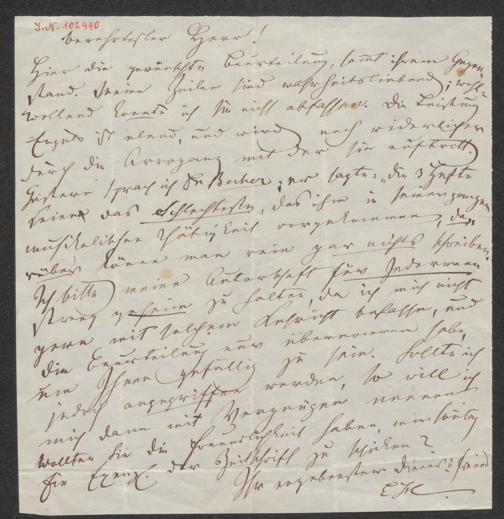 I.N. 102440
Verehrtester Herr!
Hier die gewünschte Beurteilung, samt ihrem Gegen-
stand. Meine Zeilen sind wahrheitsliebend; wohl-
wollend konnte ich sie nicht abfassen. Die Leistung
ist elend, und wird noch widerlicher
durch die Arroganz mit der sie auftritt
Gestern sprach ich Dr Becher, er sagte: "die 3 Hefte
seien das Schlechteste, das ihm in seiner ganzen
musikalischen Thätigkeit vorgekommen, da-
rüber könne man rein gar nichts schreiben"
Ich bitte meine Autorschaft für Jedermann
streng geheim zu halten, da ich mich nicht
gern mit solchem Kehricht befasse, und
die Beurteilung nur übernommen habe,
um Ihnen gefällig zu sein. Sollte ich
jedoch angegriffen werden, so will ich
mich dann mit Vergnügen nennen
Wollten Sie die Freundlichkeit haben,
Ein Exempl. der Zeitschrift zu schicken?
Ihr ergebenster Diener u Freund